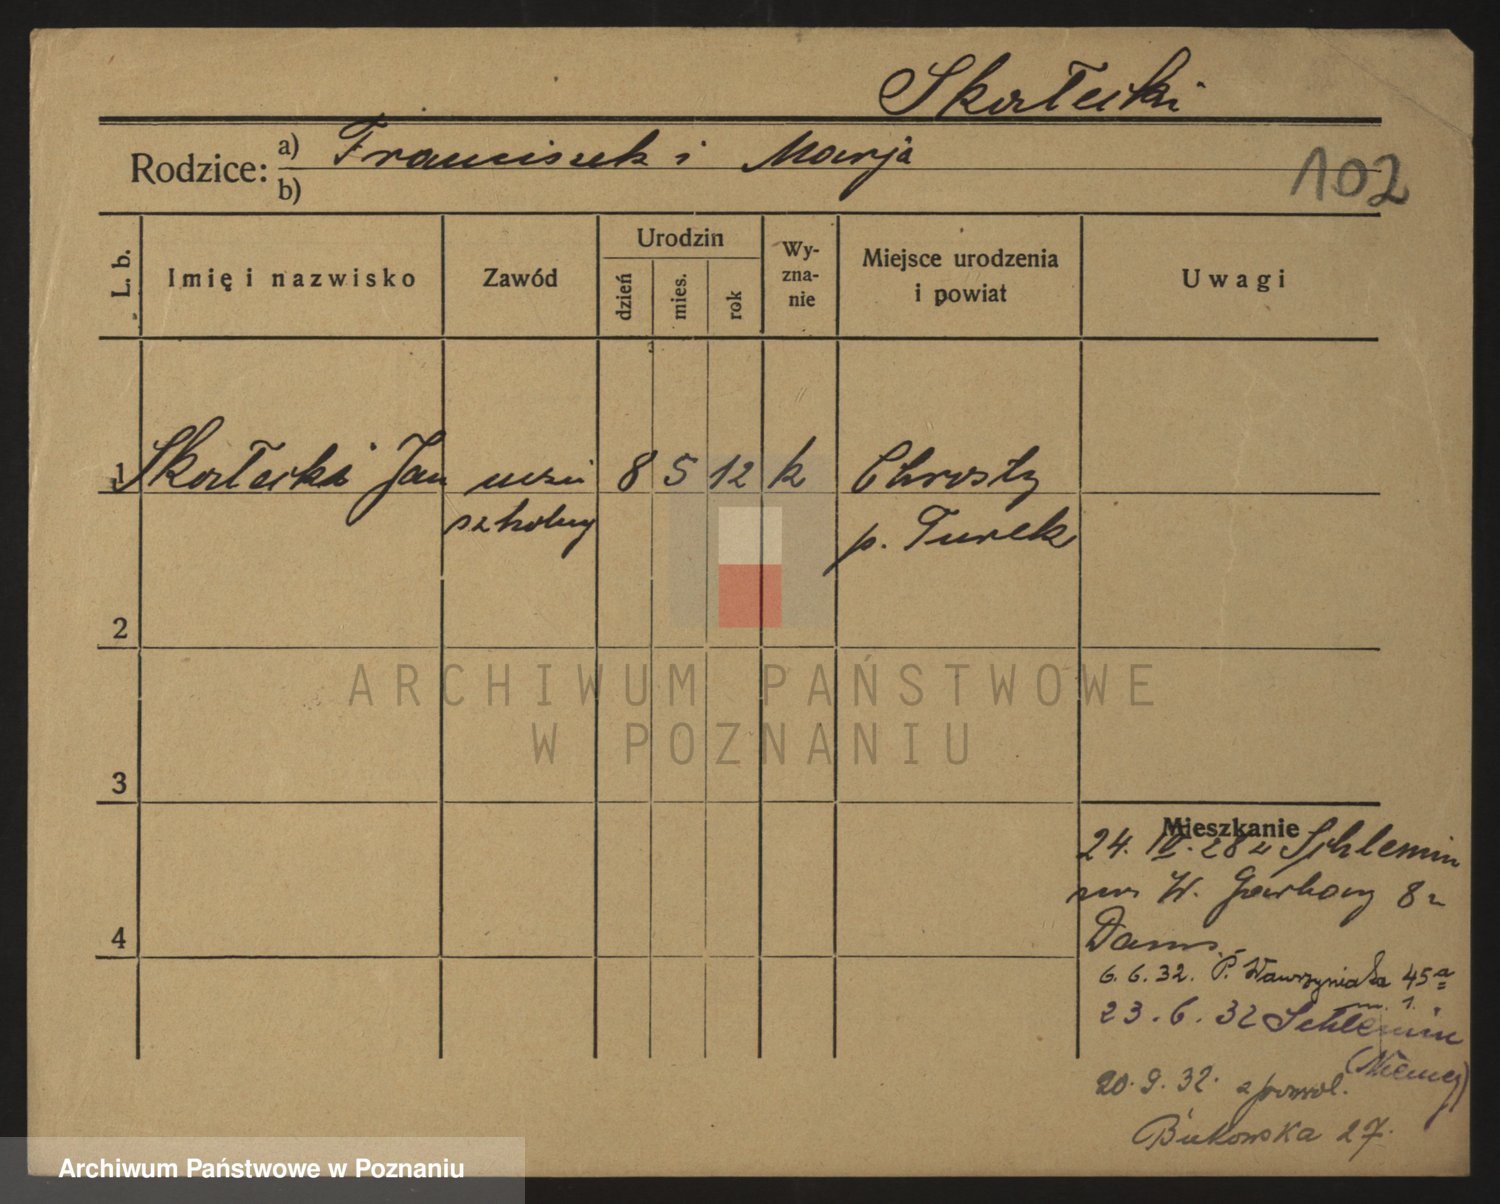 Skołecki
Rodzice: a) Franciszek i Marja
b)
102
L. b. Imię i nazwisko Zawód Urodzin dzień mies. rok Wyznanie Miejsce urodzenia i powiat Uwagi
1 Skołecki Jan uczeń 8 5 12 k Chrosty
szkolny p. Turek
2
3
4
Mieszkanie
24. IV. 28 z Schlemin
W. Garbary 8
6. 6. 32. P. Wawrzyniaka 45a
m. 1.
23. 6. 32 Schlemin
(Niemcy)
20. 9. 32.
Bukowska 27.
ARCHIWUM PAŃSTWOWE
W POZNANIU
Archiwum Państwowe w Poznaniu